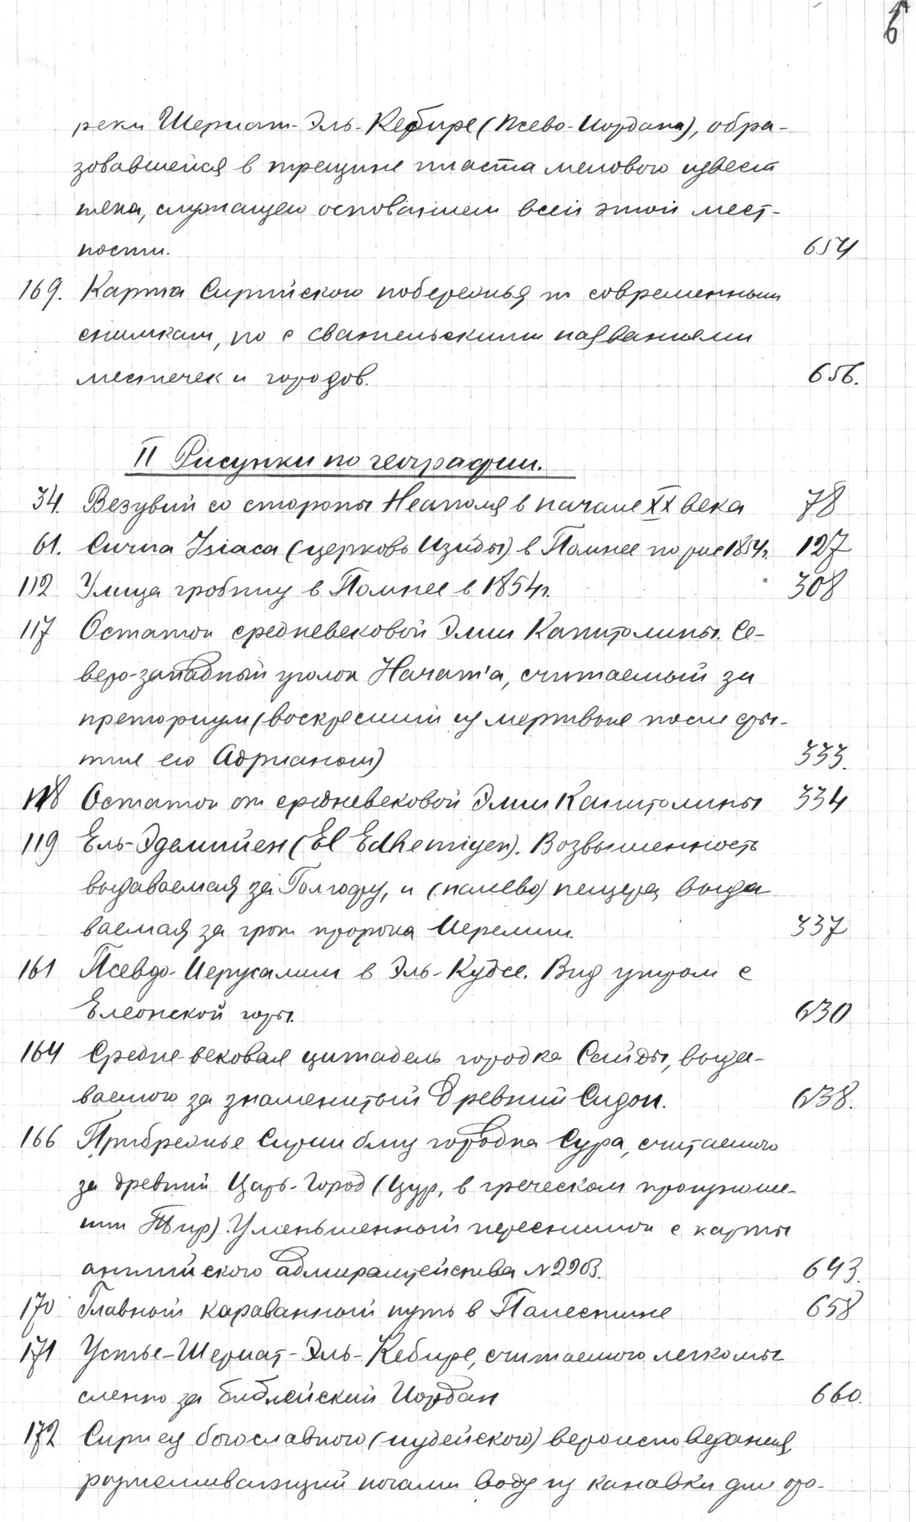 6
реки Шериат-Эль-Кебире (Псево-Иордана), обра-
зовавшейся в трещине пласта мелового извест
няка, служащего основанием всей этой мест-
ности. 654
169. Карта Сирийского побережья по современным
снимкам, но с евангельскими названиями
местечек и городов. 656.
II Рисунки по географии.
34. Везувий со стороны Неаполя в начале XX века 78
61. Curna Isiaca (церковь Изиды) в Помпее по рис 1854г. 127
112 Улица гробниц в Помпее в 1854г. 308
117 Остаток средневековой Элии Капитолины. Се-
веро-западный уголок Начат'а, считаемый за
преториум (воскресший из мертвых после сры-
тия его Адрианом) 333.
118 Остаток от средневековой Элии Капитолины 334
119 Ель-Эдемийен (El Edhemiyen). Возвышенность
выдаваемая за Голгофу, и (налево) пещера, выда
ваемая за грот пророка Иеремии. 337
161 Псевдо-Иерусалим в Эль-Кудсе. Вид утром с
Елеонской горы. 630
164 Средне вековая цитадель городка Сайды, выда-
ваемого за знаменитый древний Сидон. 638.
166 Прибрежье Сирии близ городка Сура, считаемого
за древний Царь-Город (Цур, в греческом произноше-
нии Тир). Уменьшенный переснимок с карты
английского адмиралтейства №2903. 643.
170 Главный караванный путь в Палестине 658
171 Устье-Шериат-Эль-Кебире, считаемого легкомы
сленно за библейский Иордан 660.
172 Сириец богославного (иудейского) вероисповедания,
размешивающий ногами воду из канавки для оро-